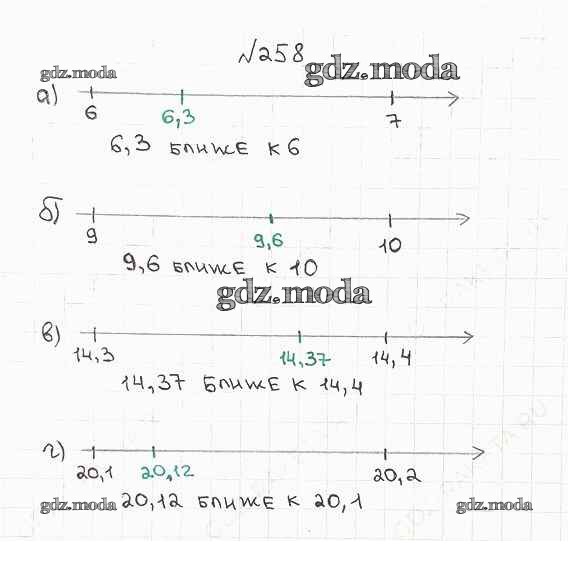 №258
gdz.moda
gdz.moda
а)
6 6,3 7
6,3 БЛИЖЕ К 6
б)
9 9,6 10
9,6 БЛИЖЕ К 10
gdz.moda
в)
14,3 14,37 14,4
14,37 БЛИЖЕ К 14,4
г)
20,1 20,12 20,2
gdz.moda 20,12 БЛИЖЕ К 20,1 gdz.moda